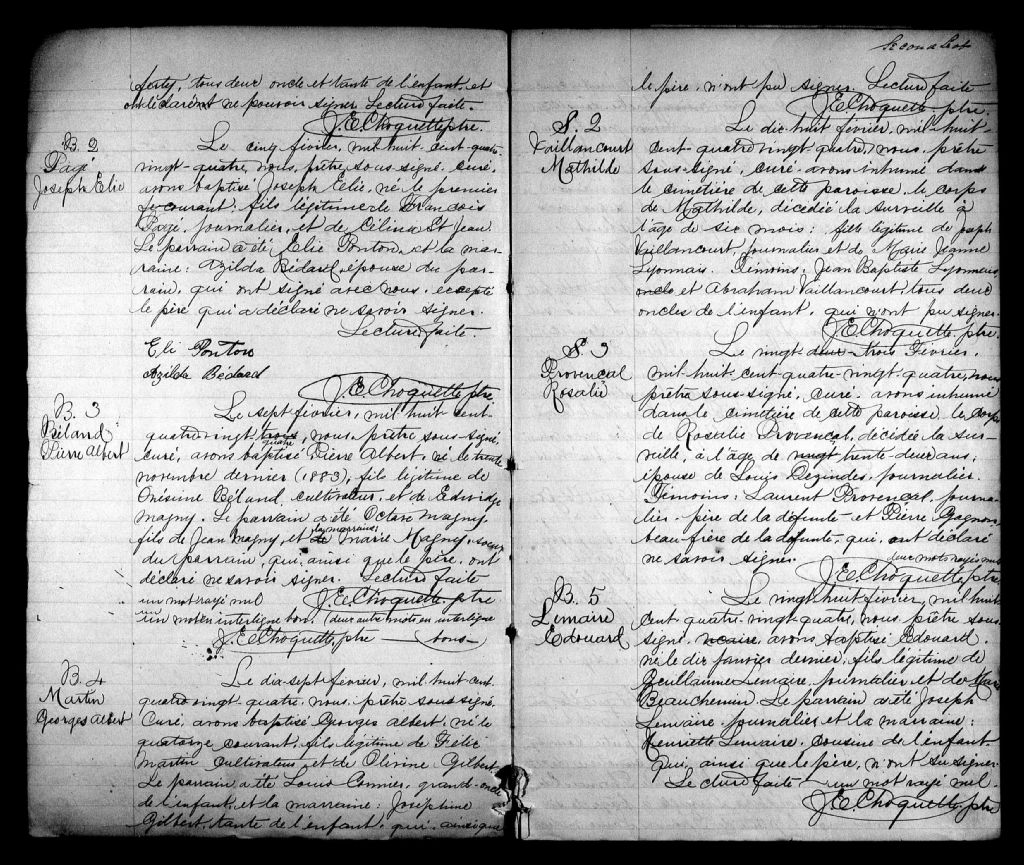 tous deux oncle et tante de l'enfant, et
ont déclaré ne pouvoir signer. Lecture faite.
J. E. Choquette ptre.
B. 2
Pagé
Joseph Elie
Le cinq février, mil huit cent quatre-
vingt-quatre, nous, prêtre sous-signé, curé,
avons baptisé Joseph Elie, né le premier
du courant: fils légitime de François
Pagé, journalier, et de Célina St Jean.
Le parrain a été Elie Ponton, et la mar-
raine: Azilda Bédard, épouse du par-
rain, qui ont signé avec nous, excepté
le père qui a déclaré ne savoir signer.
Lecture faite.
Eli Ponton
Azilda Bédard
J. E. Choquette ptre
B. 3
Béland
Pierre Albert
Le sept février, mil huit cent
quatre vingt trois quatre, nous, prêtre sous-signé,
curé, avons baptisé Pierre Albert, né le trente
novembre dernier (1883), fils légitime de
Onésime Béland, cultivateur, et de Edwidge
Magny. Le parrain a été Octave Magny,
fils de Jean Magny, et la marraine, Marie Magny, soeur
du parrain, qui, ainsi que le père, ont
déclaré ne savoir signer. Lecture faite
un mot rayé nul J. E. Choquette, ptre
un mot en interligne bon. (deux autres mots en interligne
J. E. Choquette, ptre — bons —
B. 4
Martin
Georges Albert
Le dix-sept février, mil huit cent
quatre vingt quatre, nous, prêtre sous signé,
Curé, avons baptisé Georges Albert, né le
quatorze courant, fils légitime de Félix
Martin cultivateur et de Olivine Gilbert.
Le parrain a été Louis Cormier, grand-oncle
de l'enfant, et la marraine: Josephine
Gilbert, tante de l'enfant, qui, ainsi que
le père, n'ont pu signer. Lecture faite
J. E. Choquette ptre.
S. 2
Vaillancourt
Mathilde
Le dix huit février, mil-huit-
cent-quatre vingt quatre, nous, prêtre
sous-signé, curé, avons inhumé dans
le cimetière de cette paroisse, le corps
de Mathilde, décédée la surveille à
l'âge de six mois: fille légitime de Joseph
Vaillancourt, journalier et de Marie Jeanne
Lyonnais. Témoins: Jean Baptiste Lyonnais,
oncle et Abraham Vaillancourt, tous deux
oncles de l'enfant, qui n'ont pu signer.
J. E. Choquette, ptre.
S. 3
Provençal
Rosalie
Le vingt-deux-trois Février,
mil-huit-cent-quatre-vingt-quatre, nous
prêtre sous-signé, curé, avons inhumé
dans le cimetière de cette paroisse le corps
de Rosalie Provençal, décédée la sur-
veille, à l'âge de vingt trente-deux ans,
épouse de Louis Dezindes, journalier.
Témoins: Laurent Provençal, journa-
lier, père de la défunte et Pierre Gagnon
beau frère de la défunte, qui, ont déclaré
ne savoir signer. deux mots rayés nuls
J. E. Choquette, ptre
B. 5
Lemaire
Edouard
Le vingt huit février, mil huit
cent-quatre-vingt-quatre, nous prêtre sous-
signé, vicaire, avons baptisé Edouard,
né le dix janvier dernier, fils légitime de
Guillaume Lemaire, journalier et de
Beauchemin. Le parrain a été Joseph
Lemaire journalier et la marraine:
Henriette Lemaire, cousine de l'enfant
Qui, ainsi que le père, n'ont su signer.
Lecture faite — un mot rayé nul.
J. E. Choquette, ptre